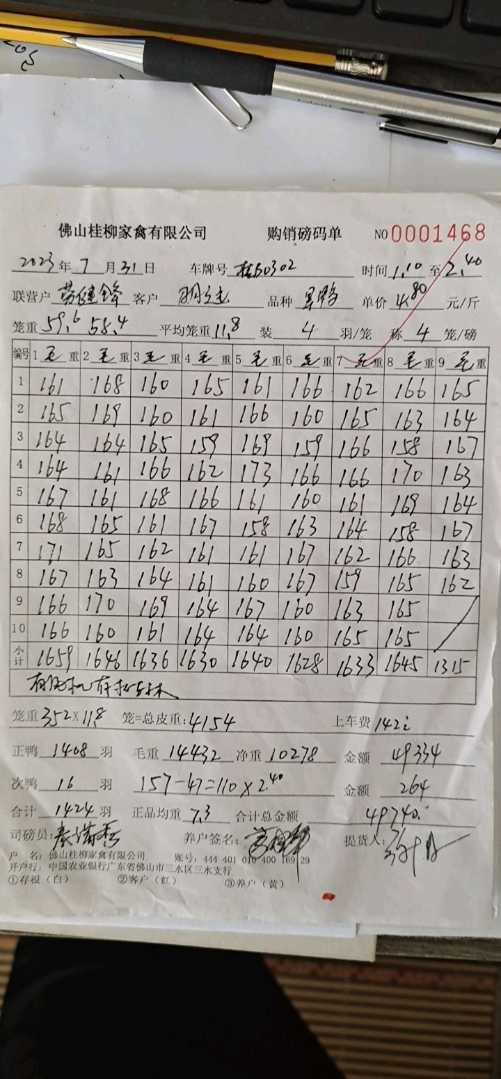 佛山桂柳家禽有限公司 购销磅码单 NO 0001468
2023年 7 月 31 日 车牌号 桂50302 时间 1.10 至 2.40
联营户 客户 品种 单价 4.80 元/斤
笼重 59.6 58.4 平均笼重 11.8 装 4 羽/笼 称 4 笼/磅
编号 1 毛 重 2 毛 重 3 毛 重 4 毛 重 5 毛 重 6 毛 重 7 毛 重 8 毛 重 9 毛 重
1 161 168 160 165 161 166 162 166 165
2 165 169 160 161 166 160 165 163 164
3 164 164 165 159 169 159 166 158 167
4 164 161 166 162 173 166 166 170 163
5 167 161 168 166 161 160 161 169 164
6 168 165 161 167 158 163 164 158 167
7 171 165 162 161 161 167 162 166 163
8 167 163 164 161 160 167 159 165 162
9 166 170 169 164 167 160 163 165
10 166 160 161 164 164 160 165 165
小计 1659 1646 1636 1630 1640 1628 1633 1645 1315
笼重 352×11.8 笼=总皮重: 4154 上车费 142
正鸭 1408 羽 毛重 14432 净重 10278 金额 49334
次鸭 16 羽 157-47=110×2.40 金额 264
合计 1424 羽 正品均重 7.3 合计总金额 49740
司磅员: 养户签名: 提货人:
户 名: 佛山桂柳家禽有限公司 账号: 444 401 010 400 169 29
开户行: 中国农业银行广东省佛山市三水区三水支行
①存根(白) ②客户(红) ③养户(黄)